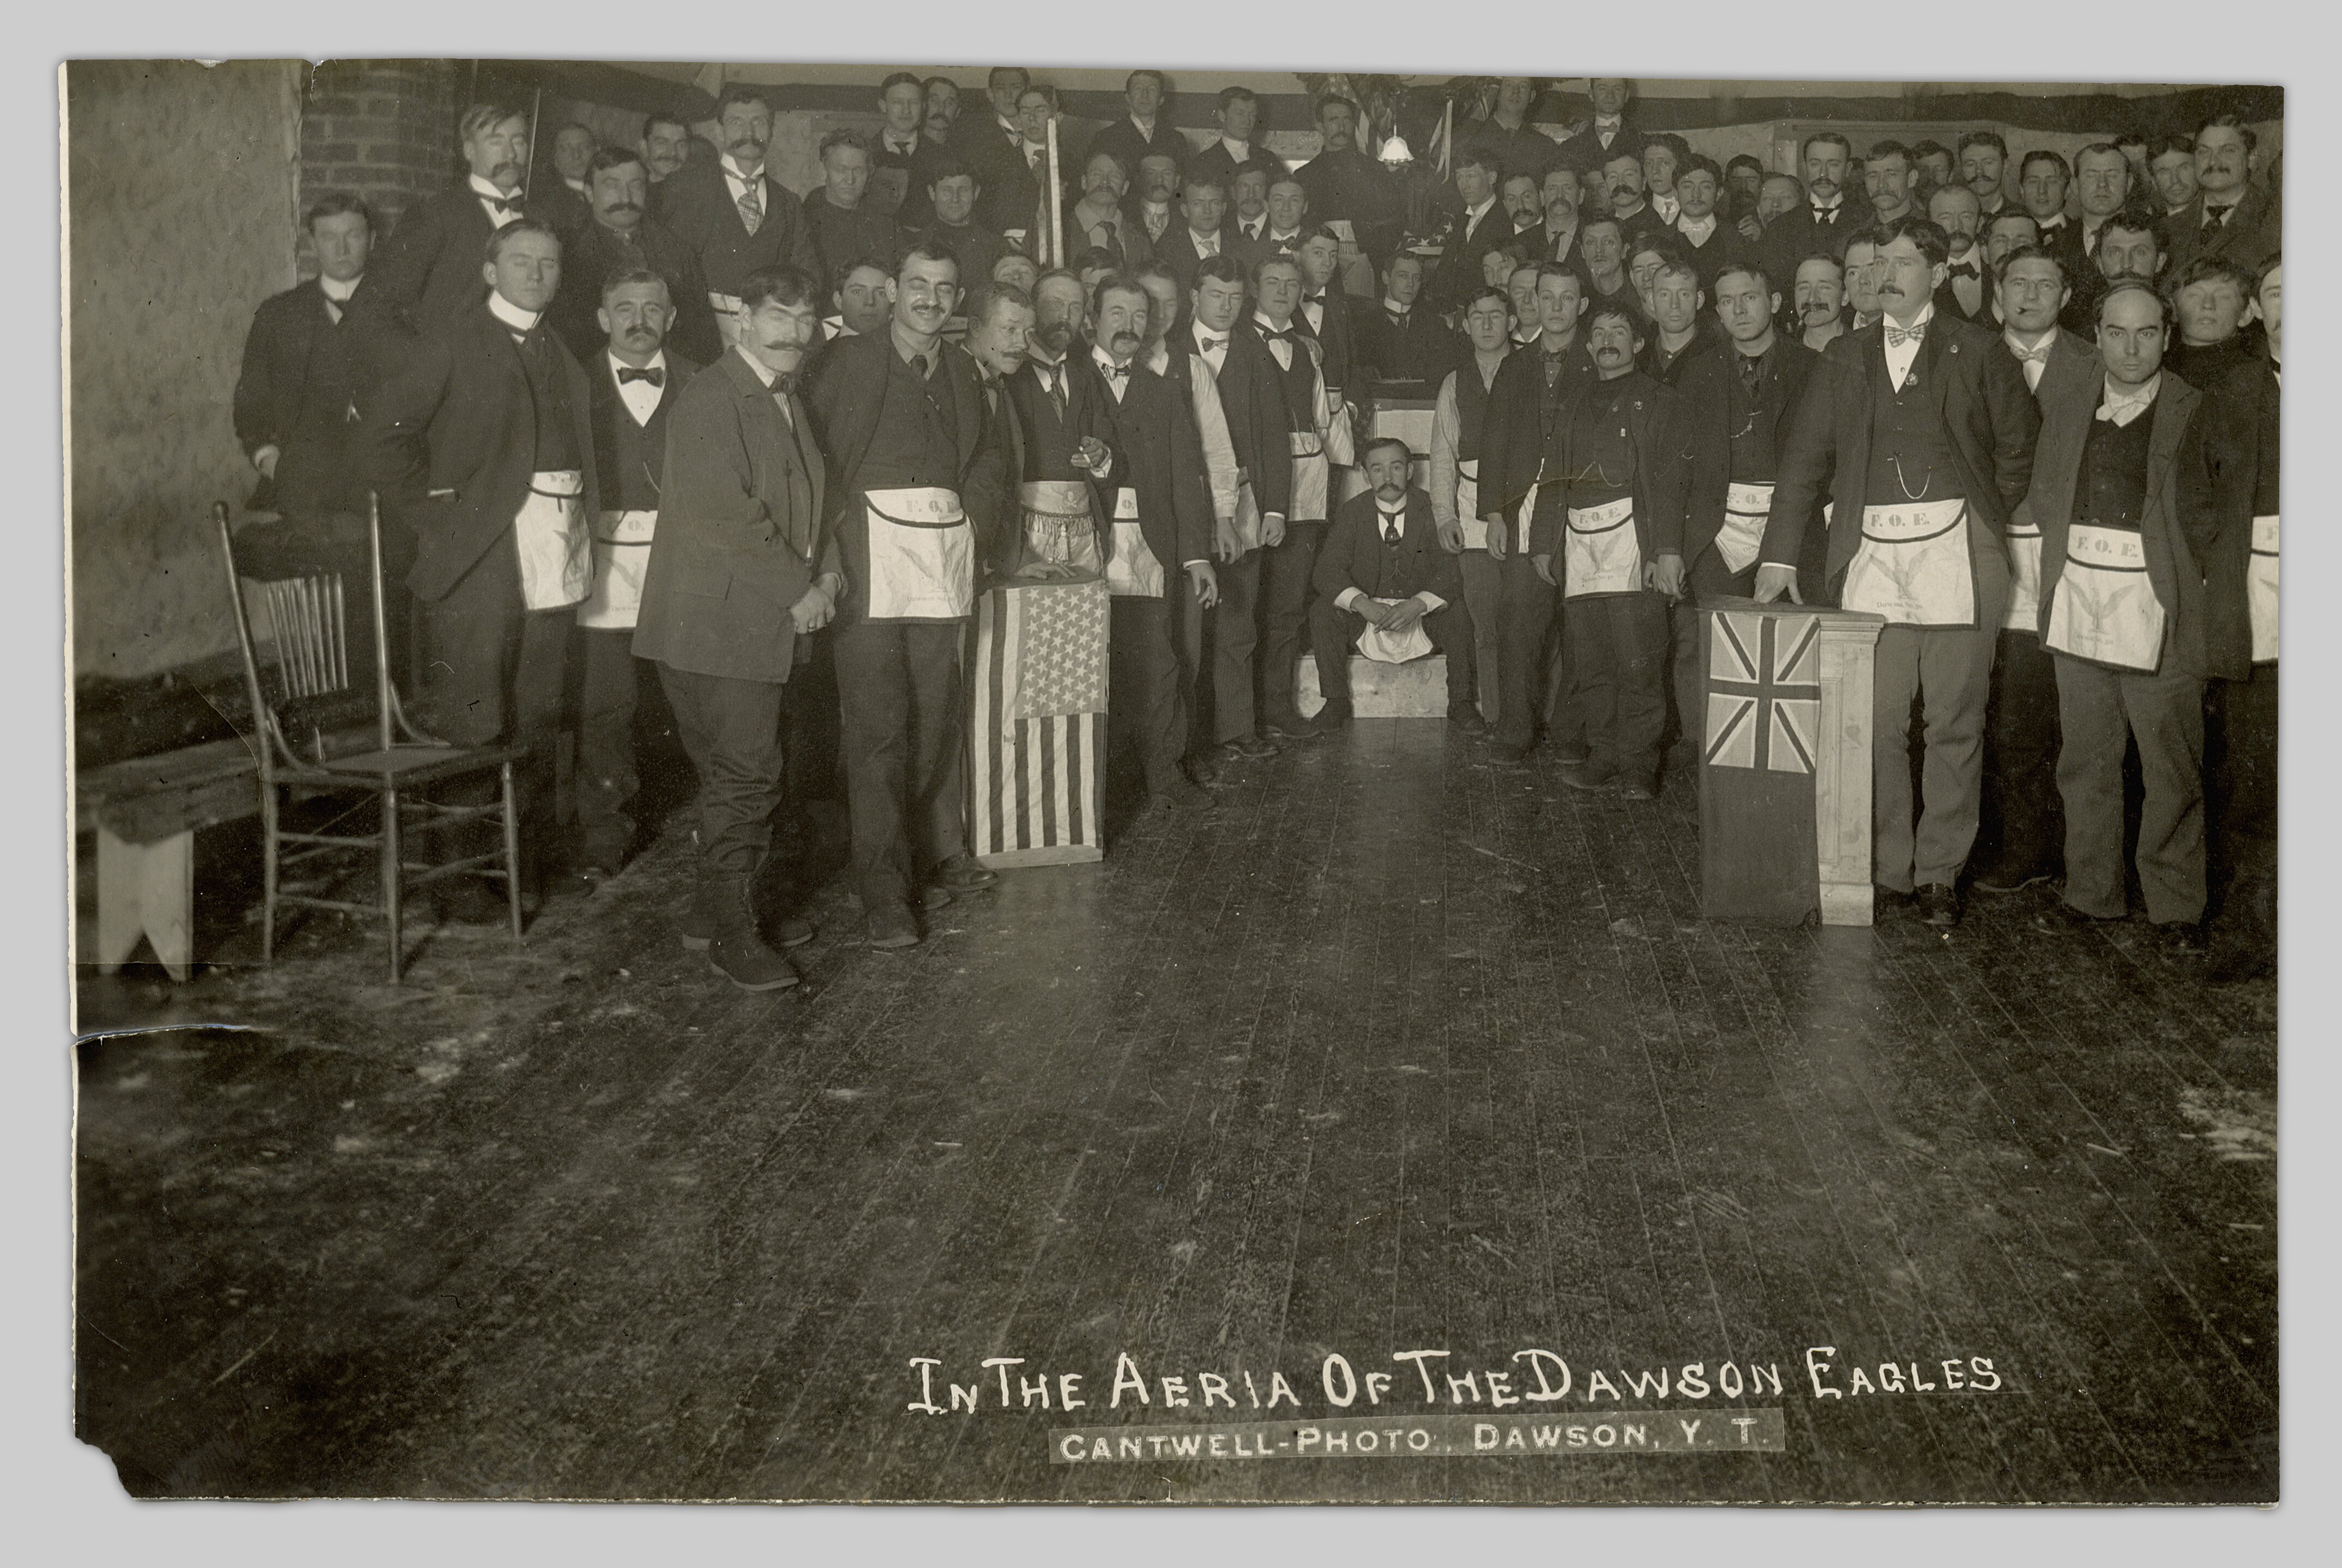 F. O.
F. O.
F. O. E.
F. O.
F. O. E.
F. O. E.
IN THE AERIA OF THE DAWSON EAGLES
CANTWELL-PHOTO. DAWSON, Y. T.